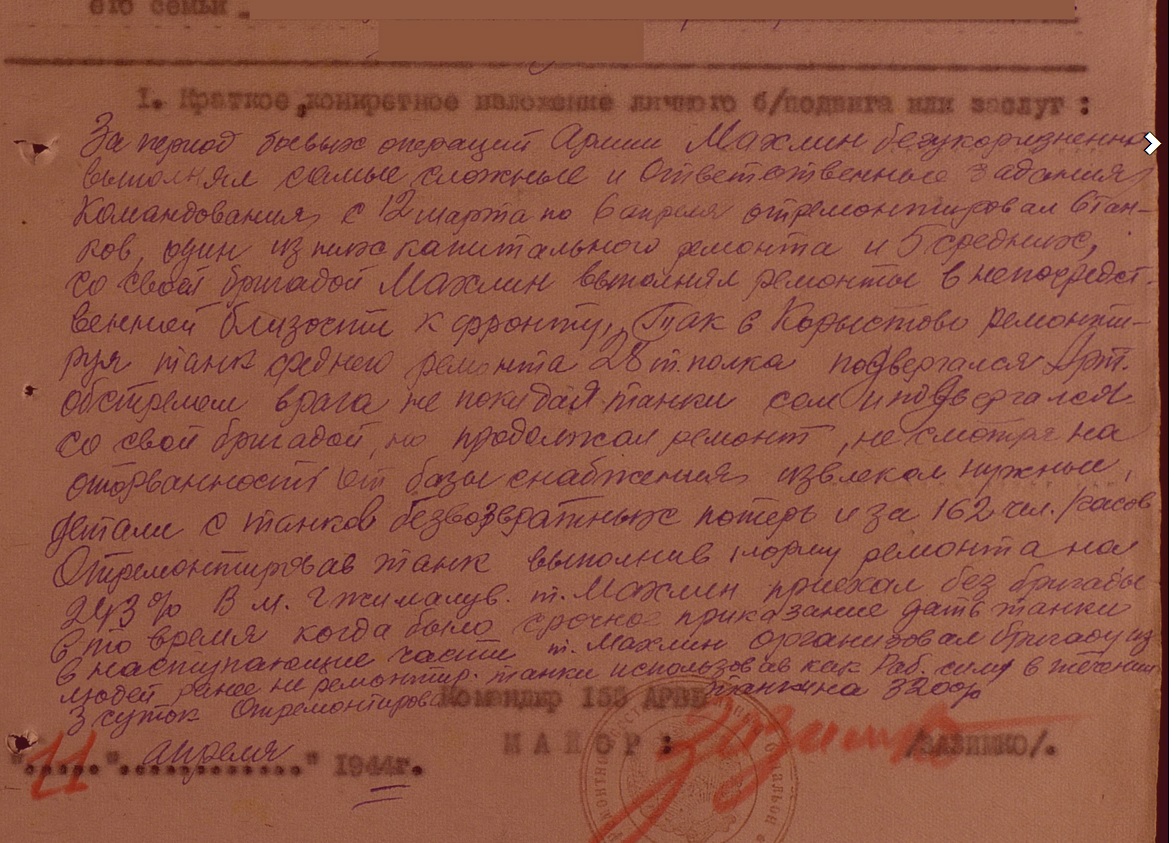 его семьи
1. Краткое, конкретное изложение личного б/подвига или заслуг :
За период боевых операций Армии Махлин безукоризненно
выполнял самые сложные и ответственные задания
Командования, с 12 марта по 6 апреля отремонтировал 6 тан-
ков, один из них капитального ремонта и 5 средних,
со своей бригадой Махлин выполнял ремонты в непосредст-
венной близости к фронту, Так в Корыстово ремонти-
руя танк среднего ремонта 28 т. полка подвергался Арт.
обстрелам врага не покидая танки сам и подвергался
со свой бригадой, но продолжал ремонт, не смотря на
оторванность от базы снабжения, извлекал нужные,
детали с танков безвозвратных потерь и за 162 чел./часов
Отремонтировав танк выполнив норму ремонта на
243% В м. Гжималув. т. Махлин приехал без бригады
в то время когда было срочное приказание дать танки
в наступающие части т. Махлин организовал бригаду из
людей ранее не ремонтир. танки использовав как Раб. силу в течении
3 суток Отремонтировал танк на
Командир 155 АРВБ
МАЙОР : /ЗАЗИМКО/.
"11" апреля 1944г.